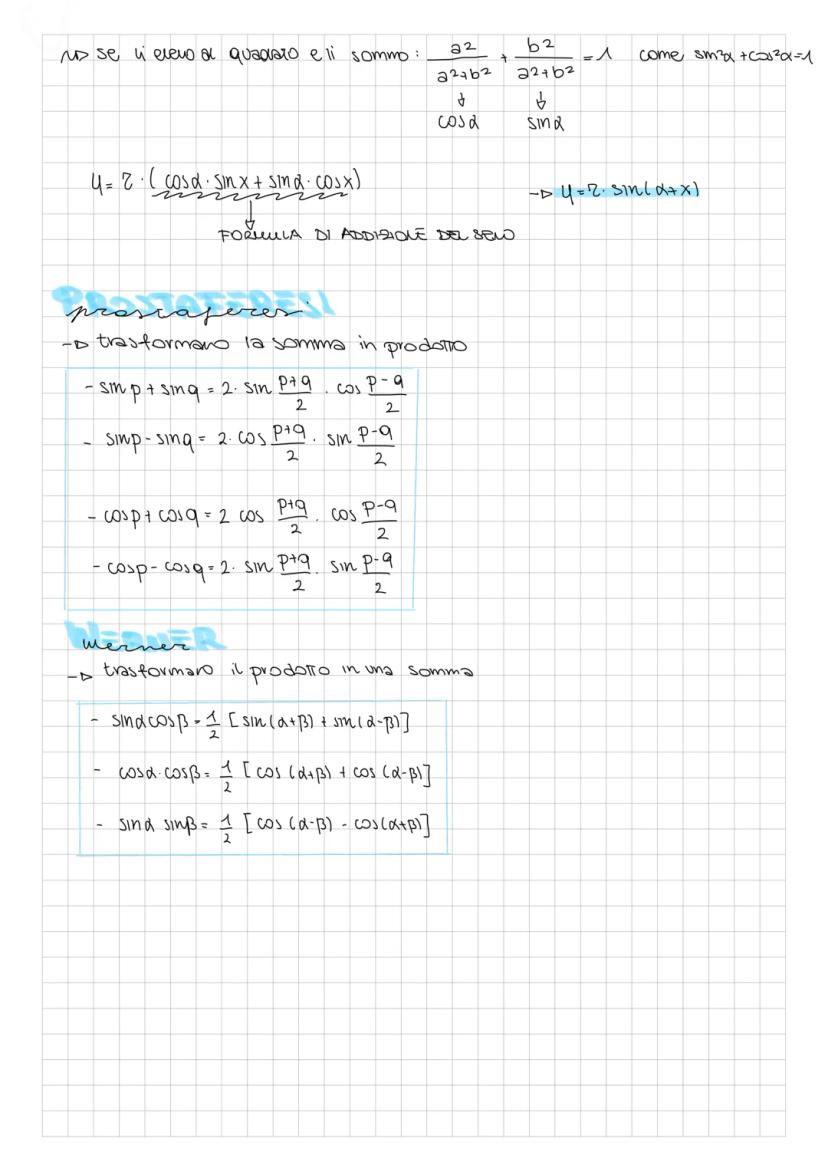 ~> se li elevo al quadrato e li sommo: a²/(a²+b²) + b²/(a²+b²) = 1 come sin²α+cos²α=1
↓ ↓
cosα sinα
y = r · ( cosα · sinx + sinα · cosx)
-> y = r · sin(α+x)
FORMULA DI ADDIZIONE DEL SENO
PROSTAFERESI
prostaferesi
-> trasformano la somma in prodotto
- sin p + sin q = 2 · sin (p+q)/2 · cos (p-q)/2
- sinp - sinq = 2 · cos (p+q)/2 · sin (p-q)/2
- cosp + cosq = 2 cos (p+q)/2 · cos (p-q)/2
- cosp - cosq = 2 · sin (p+q)/2 · sin (p-q)/2
WERNER
werner
-> trasformano il prodotto in una somma
- sinαcosβ = 1/2 [sin(α+β) + sin(α-β)]
- cosα·cosβ = 1/2 [cos (α+β) + cos (α-β)]
- sinα sinβ = 1/2 [cos (α-β) - cos(α+β)]